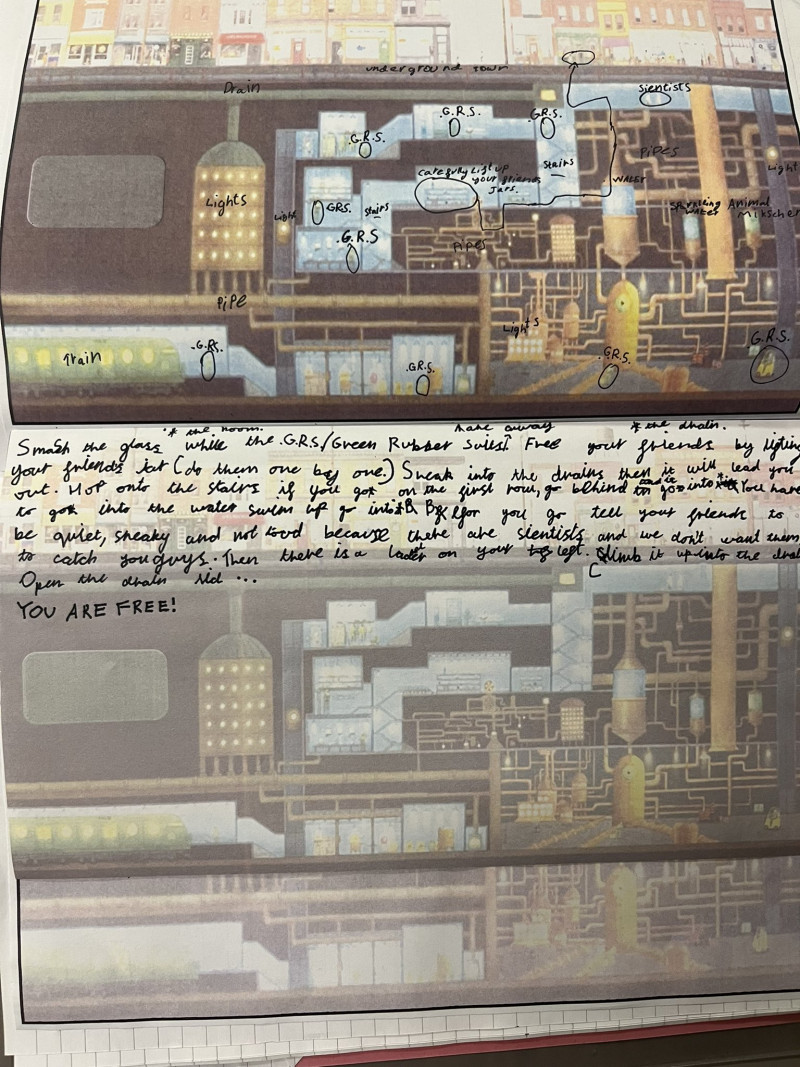 underground town
Drain
sientists
G.R.S.
G.R.S.
G.R.S.
Pipes
Stairs
Carefully Lift up
your friends
Jars.
Light
WATER
Lights
GRS.
Stairs
Light
Sparkling
water
Animal
Mikscher
G.R.S
Pipes
PiPE
Lights
Train
G.RS.
G.R.S.
G.R.S.
G.R.S.
* the room.
have away
* the drain.
Smash the glass while the G.R.S./Green Rubber Suits Free your friends by lifting
your friends Jar (do them one by one.) Sneak into the drains then it will lead you
out. Hop onto the stairs if you got on the first row, go behind go into You have
to go into the water swim up go into for you go tell your friends to
be quiet, sneaky and not loud because there are sientists and we don't want them
to catch you guys. Then there is a on your left. Climb it up into the
Open the drain lid ...
YOU ARE FREE!